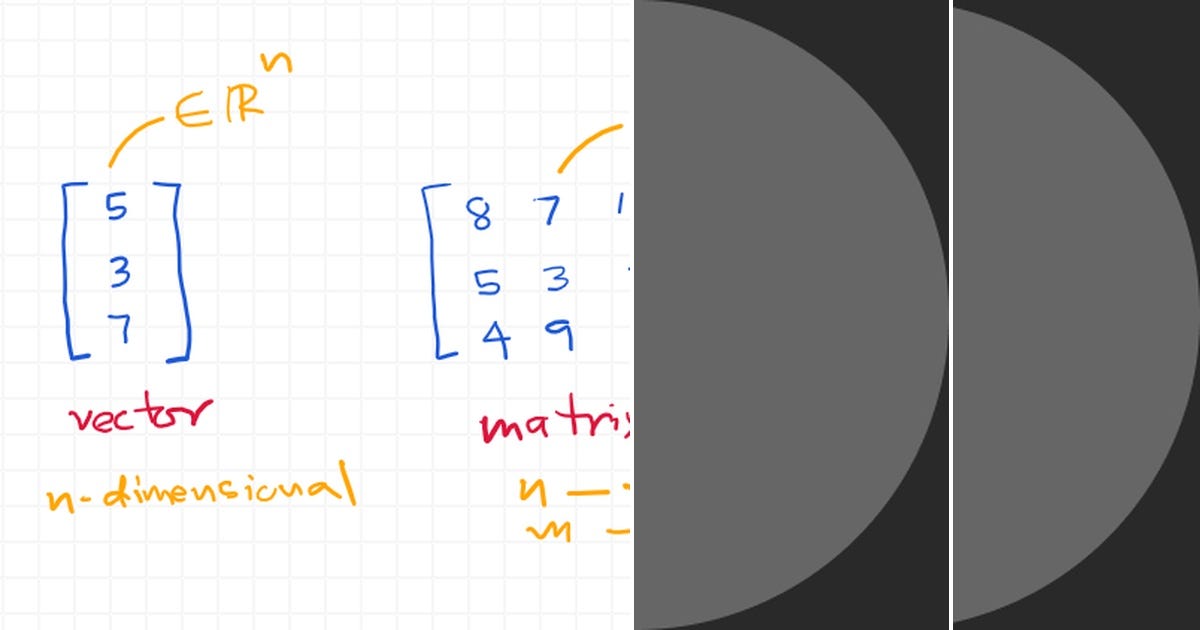 ∈ ℝⁿ
5
3
7
vector
n-dimensional
8 7 1
5 3
4 9
n —
m —